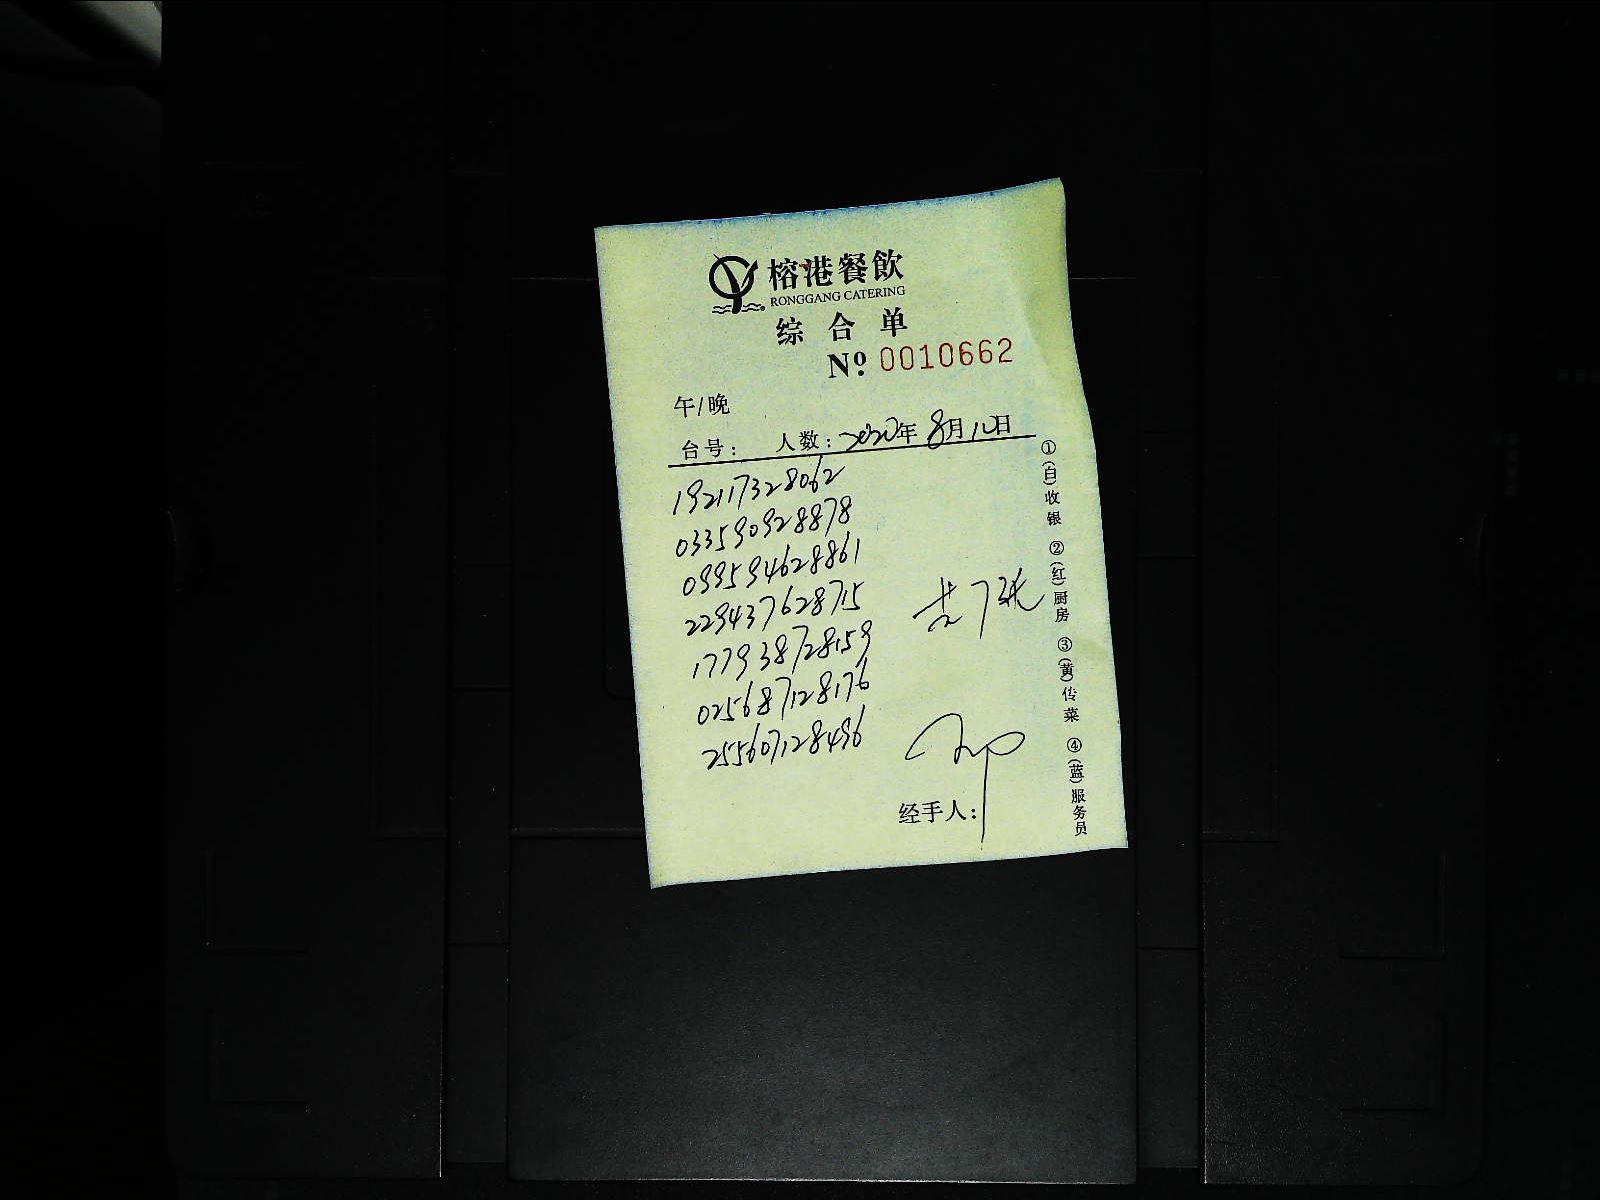 榕港餐飲
RONGGANG CATERING
综合单
Nº 0010662
午/晚
台号: 人数: 2020年 8月10日
192117328062
033590928878
099594628861
229437628715
177938728159
025687128176
255607128496
经手人:
①(白)收银 ②(红)厨房 ③(黄)传菜 ④(蓝)服务员